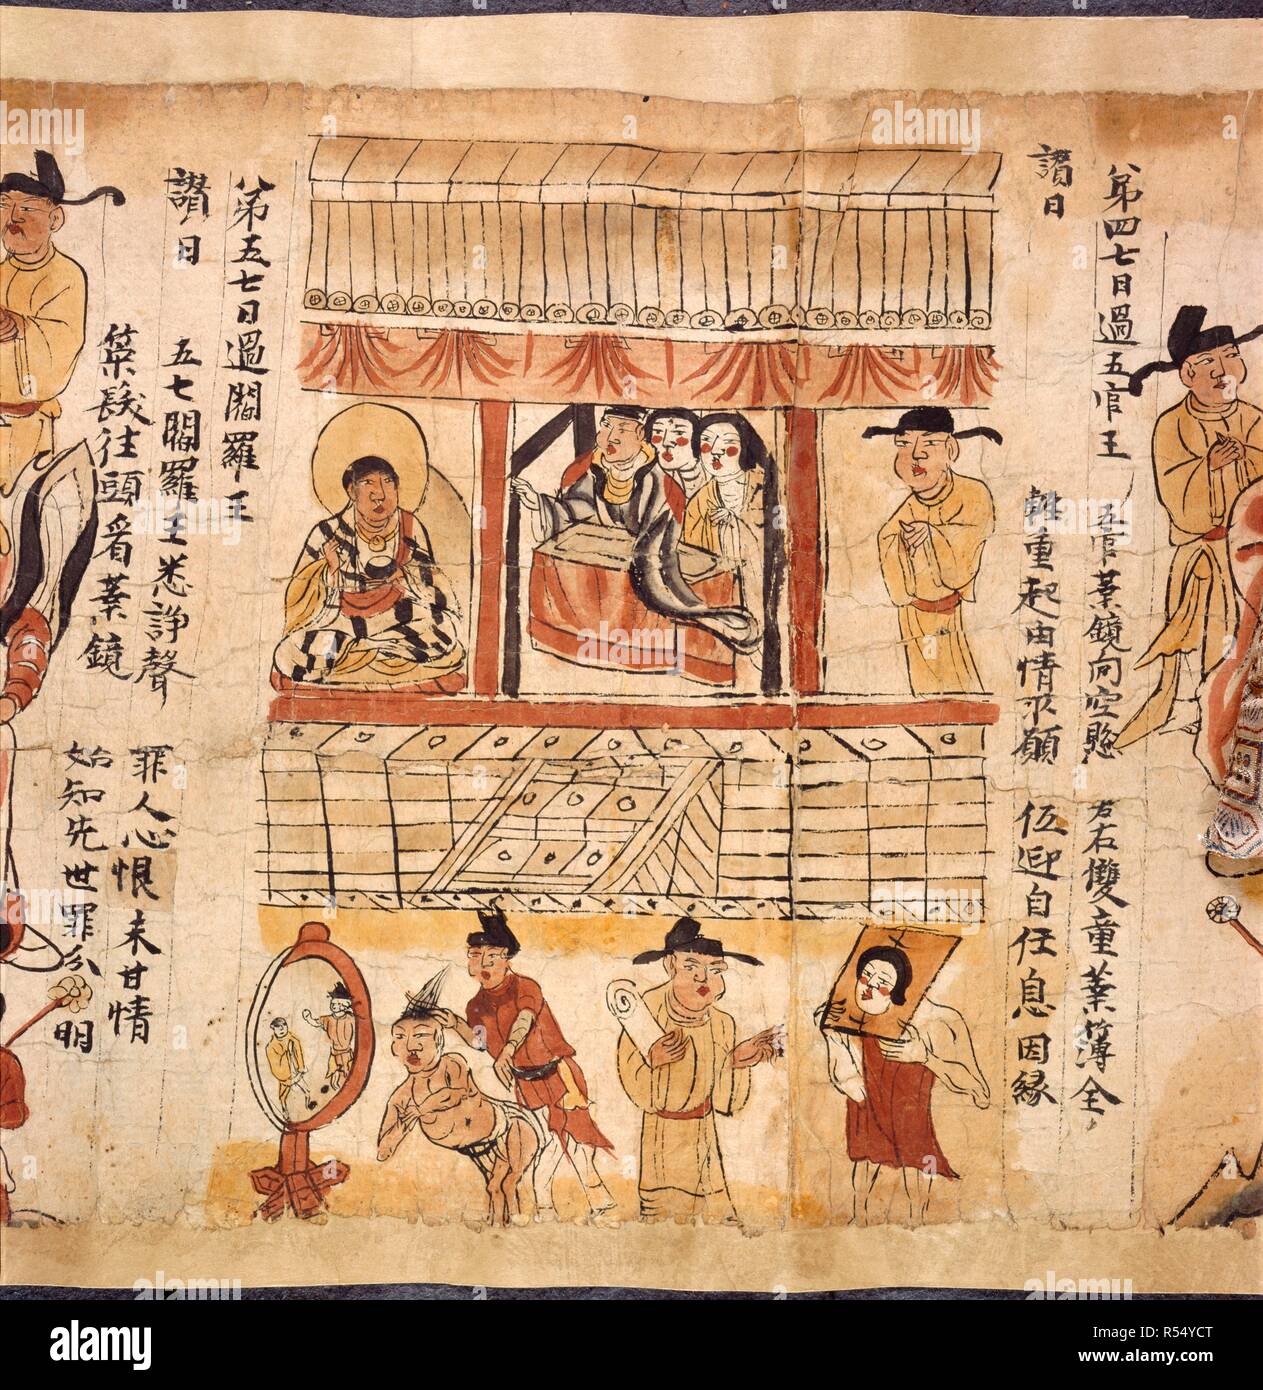 第四七日過五官王
讃曰
五官業鏡向空懸 左右雙童業簿全
重起由情求願 伍迎自任息因緣
第五七日過閻羅王
讃曰
五七閻羅王悉諍聲 罪人心恨未甘情
髮往頭看業鏡 始知先世罪分明
alamy
alamy
alamy
Image ID: R54YCT
www.alamy.com